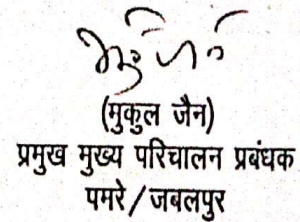 (मुकुल जैन)
प्रमुख मुख्य परिचालन प्रबंधक
पमरे/जबलपुर